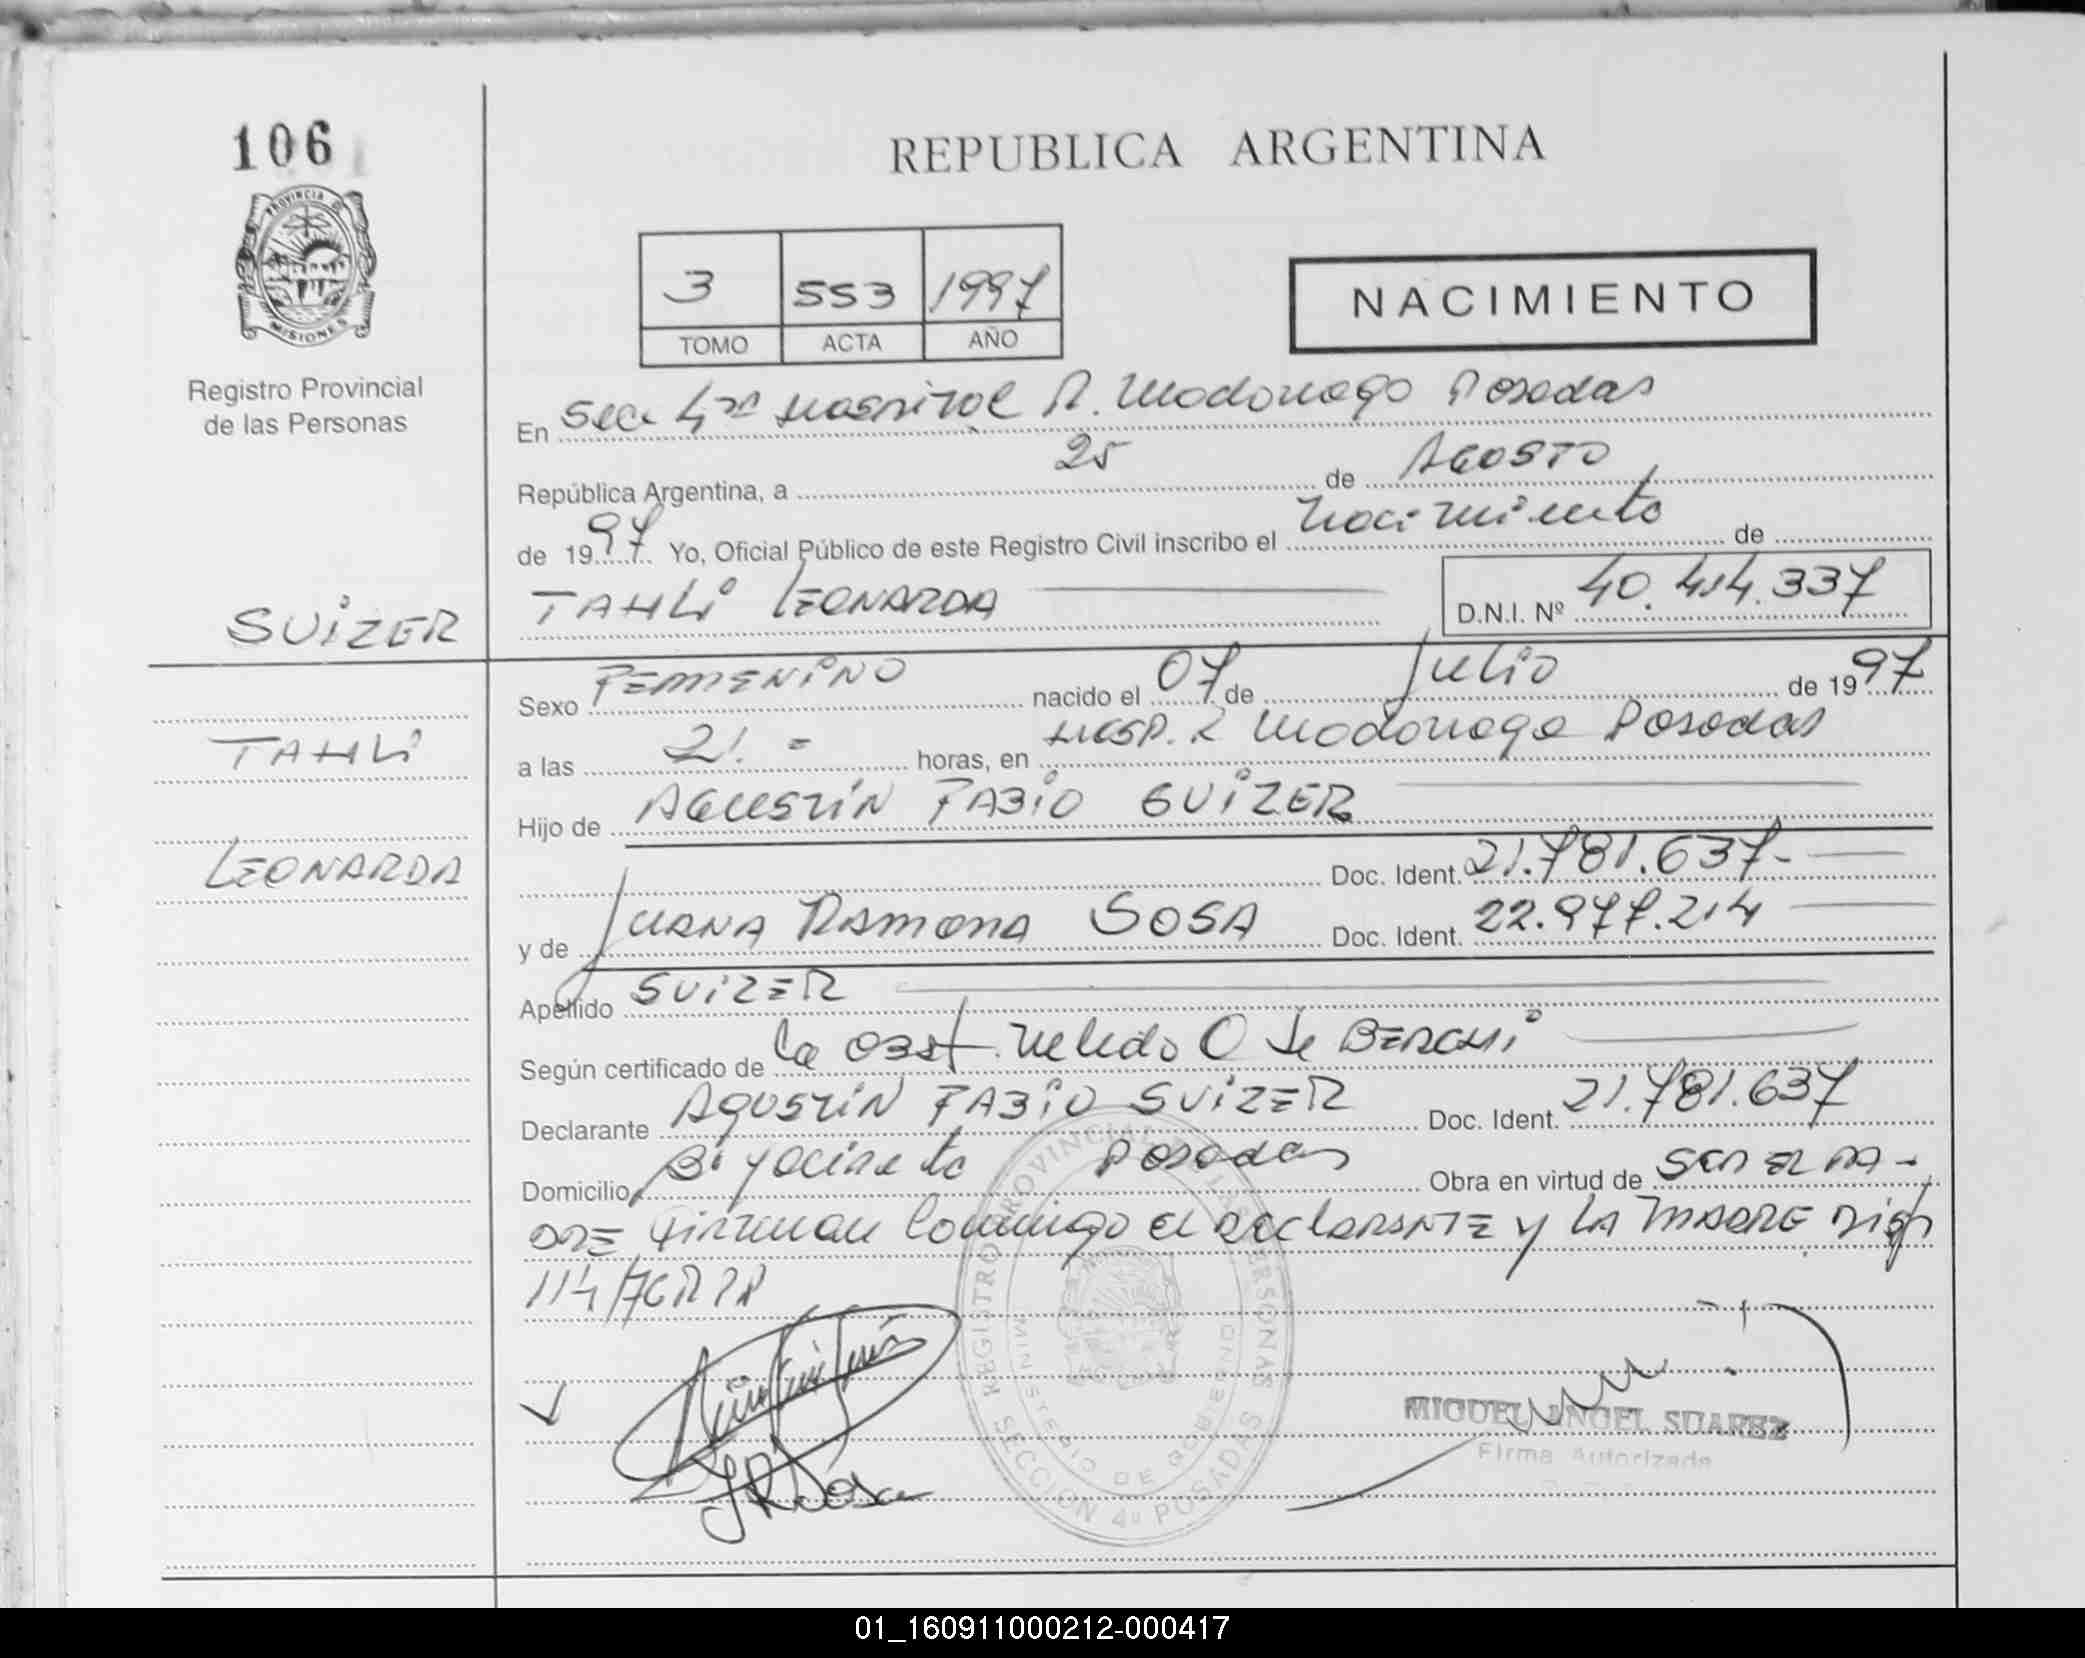 106
PROVINCIA DE
MISIONES
Registro Provincial
de las Personas
REPUBLICA ARGENTINA
3 553 1997
TOMO ACTA AÑO
NACIMIENTO
En Secc 4ta Hospital R. Madariaga Posadas
República Argentina, a 25 de AGOSTO
de 1997. Yo, Oficial Público de este Registro Civil inscribo el nacimiento de
SUIZER
TAHLI LEONARDA D.N.I. Nº 40.414.337
Sexo FEMENINO nacido el 07 de Julio de 1997
TAHLI
a las 21.= horas, en HOSP. R Madariaga Posadas
Hijo de AGUSTIN FABIO SUIZER
LEONARDA
Doc. Ident. 21.781.637-
y de JUANA RAMONA SOSA Doc. Ident. 22.977.214
Apellido SUIZER
Según certificado de la OBST. Nelida O de BERCHI
Declarante AGUSTIN FABIO SUIZER Doc. Ident. 21.781.637
Domicilio Bº Yacireta Posadas Obra en virtud de SER EL PA-
DRE firman conmigo el declarante y LA MADRE
114/76
JRSosa
REGISTRO PROVINCIAL DE LAS PERSONAS
MINISTERIO DE GOBIERNO
SECCION 4ª POSADAS
MIGUEL ANGEL SUAREZ
Firma Autorizada
01_160911000212-000417